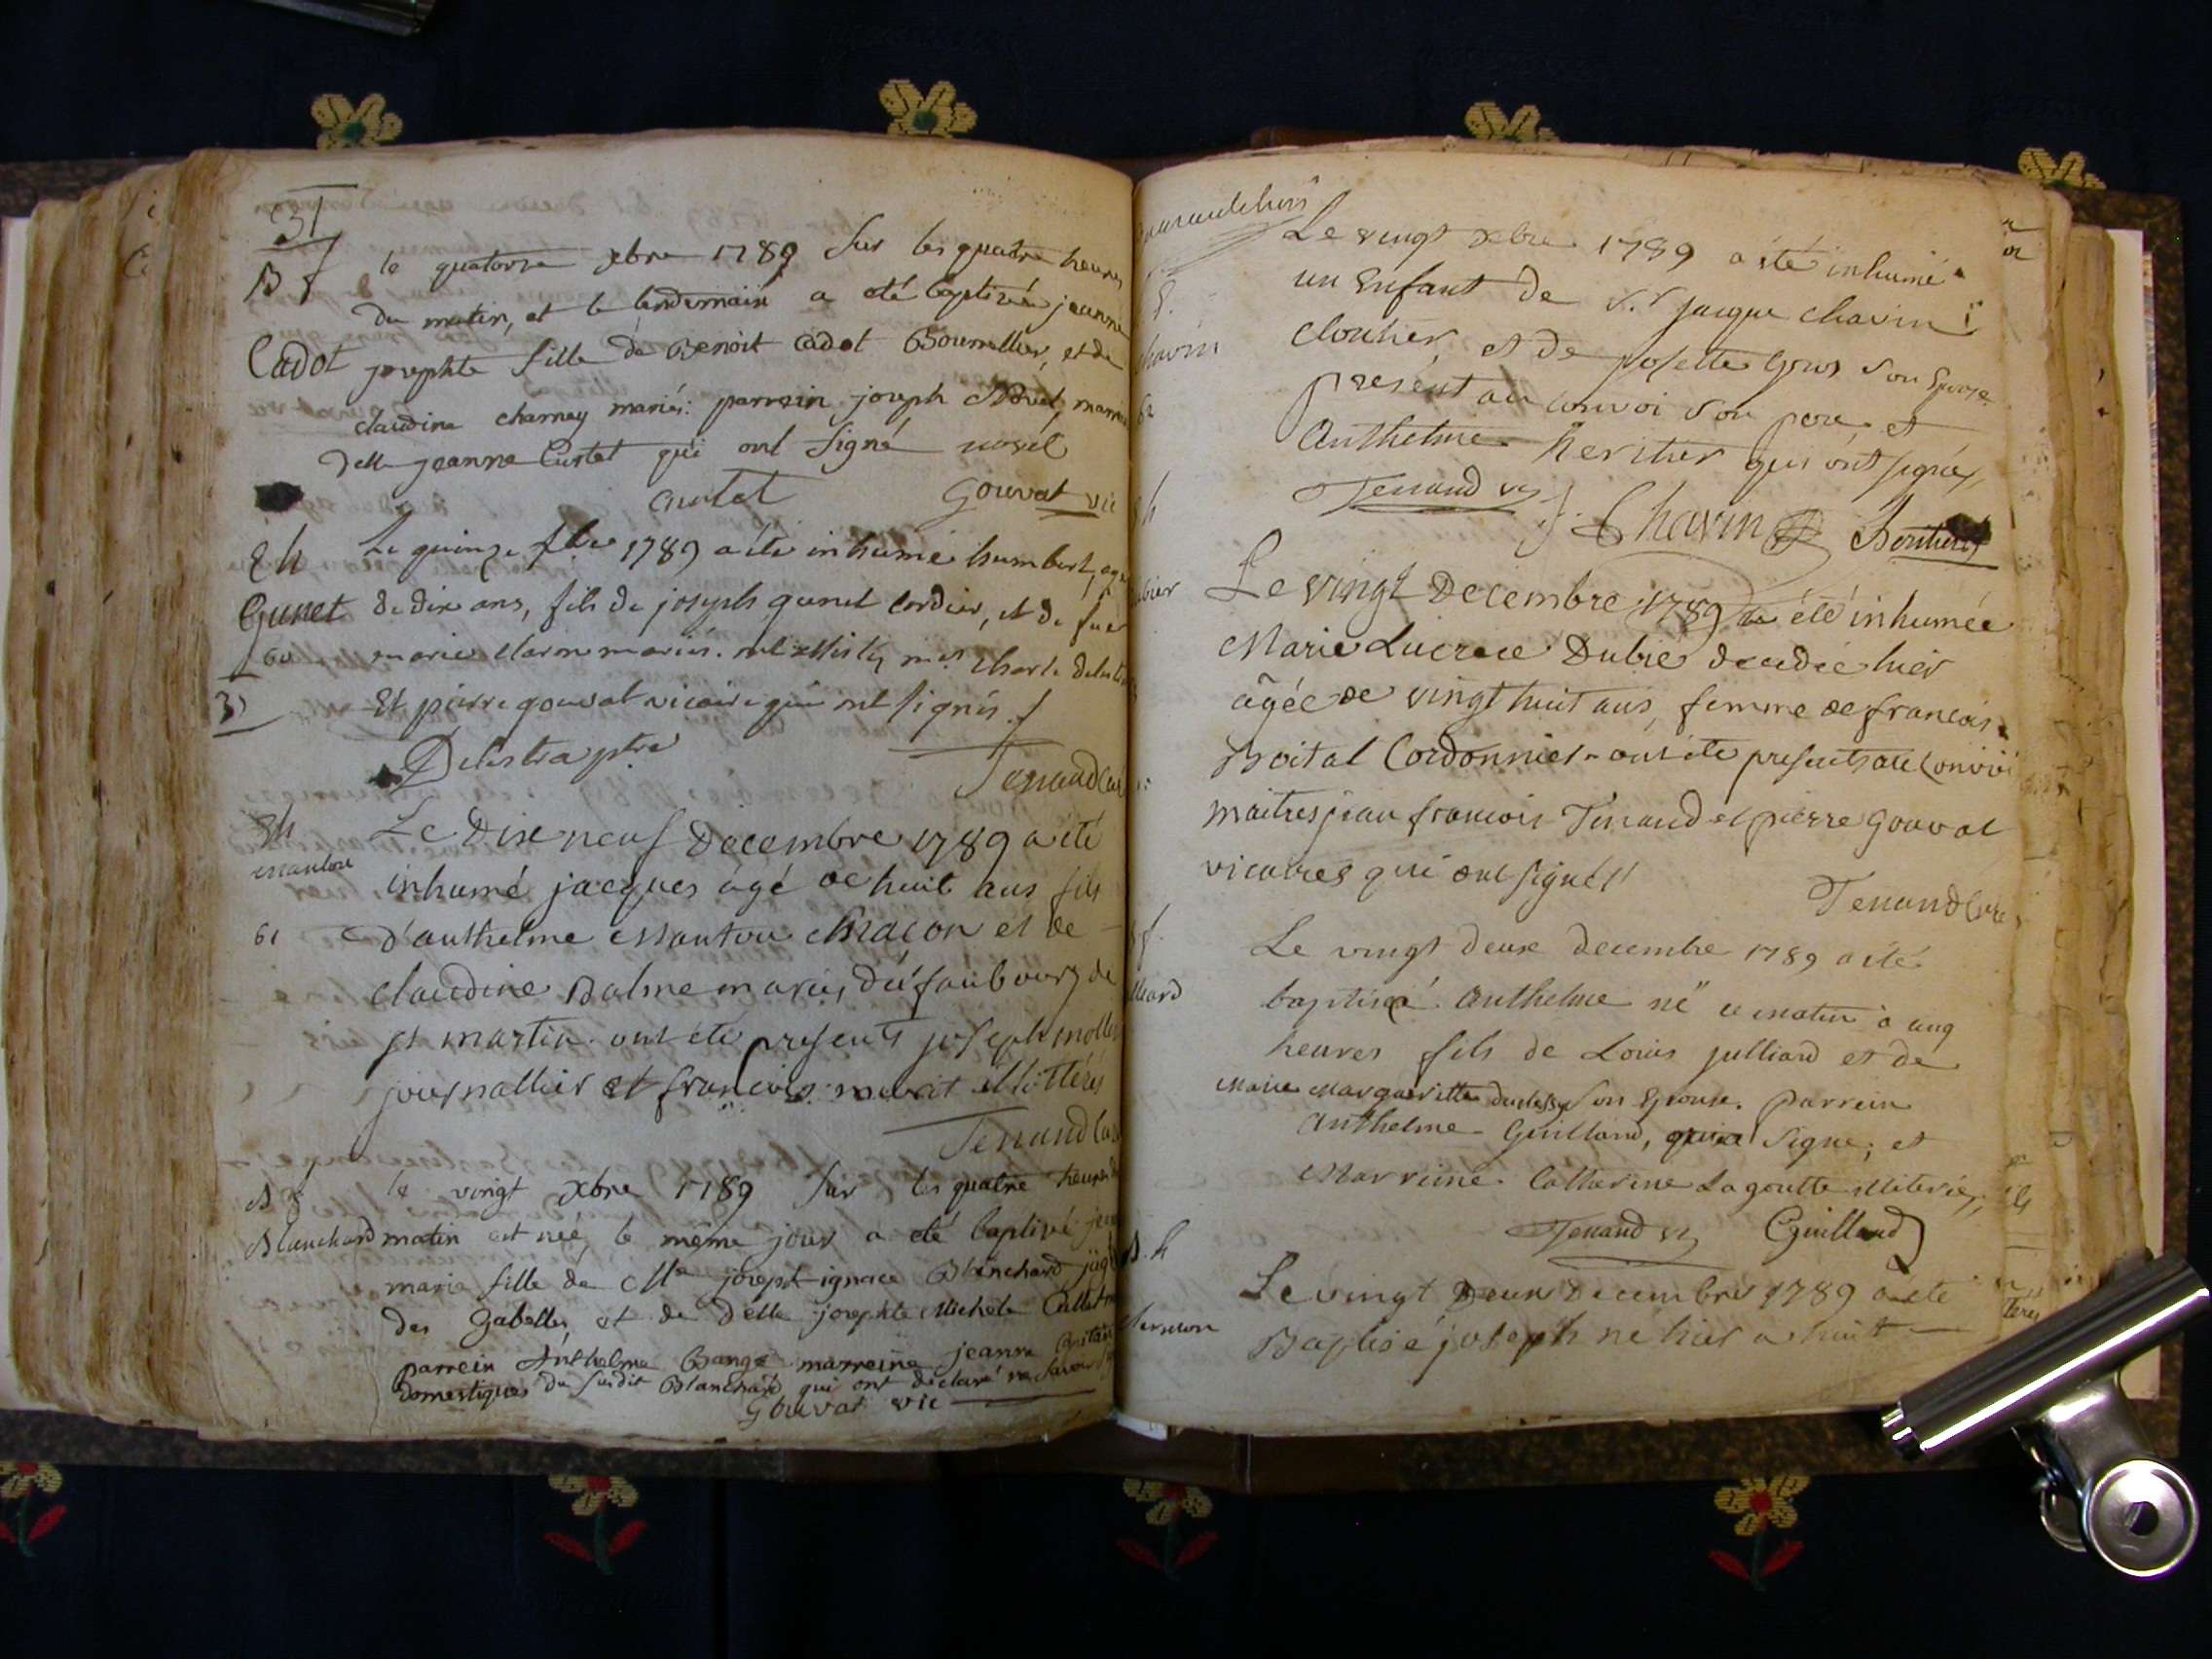 31
B f le quatorze xbre 1789 sur les quatre heures
du matin, et le lendemain a eté baptizée jeanne
Cadot josephte fille de Benoit Cadot Bourrellier, et de
claudine charney mariés: parrein joseph Novel, marr
delle jeanne Curtet qui ont signé novel
curtet Gouvat vic
Eh Le quinze xbre 1789 a été inhumé humbert, agé
Gunet de dix ans, fils de joseph gunet cordier, et de fue
60 marie mariés. Charle
3) Et pierre gouvat vicaire qui ont signés
Delestra ptre
Tenand Curé
Eh Le Dix neuf Decembre 1789 a été
Mantou inhumé jacques âgé de huit ans fils
61 d'anthelme Mantou Maçon et de
claudine Balme mariés, du faubourg de
st martin. ont été presents joseph mollie
journallier et francois illitérés
Tenand Curé
B f le vingt xbre 1789 sur les quatre heures du
Blanchard matin est née, le même jour a eté baptizé
marie fille de Me joseph ignace Blanchard juge
des Gabelles, et de Delle josephte Michele
parrein Anthelme Bange marreine jeanne
domestiques du susdit Blanchard qui ont declaré ne savoir
Gouvat vic
Le vingt xbre 1789 a été inhumé
E. un Enfant de Sr. jacque chavin
havin cloutier, et de josette Gros son Epouse
62 present au convoi son pere, et
Anthelme heritier qui ont signés
Tenand vic J. Chavin
Eh Le vingt Decembre 1789 a été inhumée
ubier Marie Lucrece Dubié decedée hier
âgée de vingt huit ans, femme de francois
Cordonnier. ont été presents au convoi
maitres jean francois Tenand et pierre Gouvat
vicaires qui ont signés
Tenand Curé
Le vingt deux decembre 1789 a été
lliard baptisé Anthelme né ce matin à cinq
heures fils de Louis julliard et de
Marie Margueritte son Epouse. Parrein
Anthelme Guilland, qui a signe, et
Marreine Catherine Lagoutte
Tenand vic Cguilland
B. h Le vingt Deux Decembre 1789 a été
Baptisé joseph né hier a huit